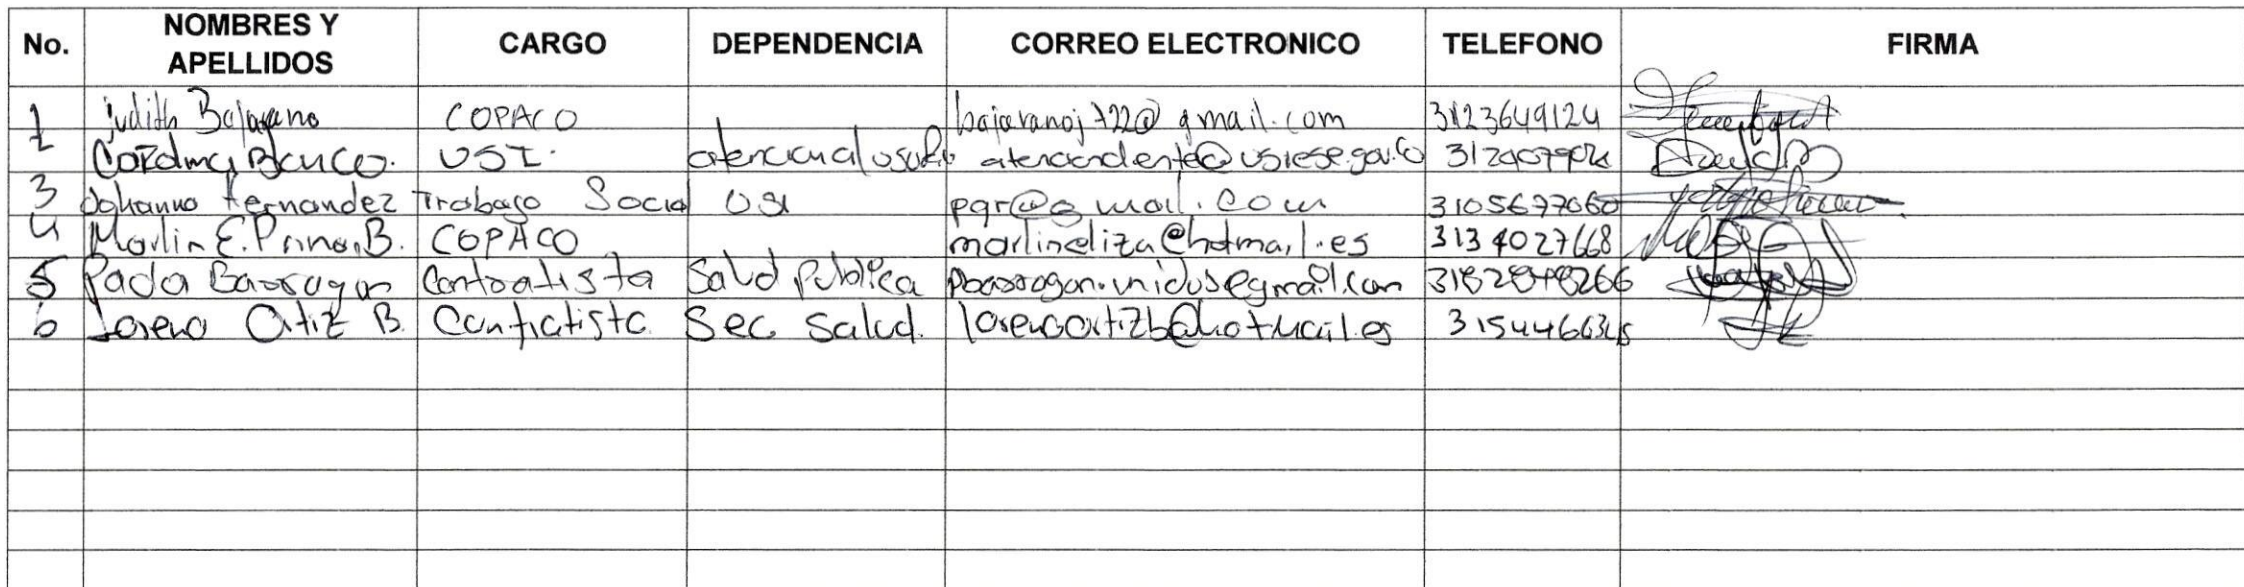 No. NOMBRES Y APELLIDOS CARGO DEPENDENCIA CORREO ELECTRONICO TELEFONO FIRMA
1 Judith Bejarano COPACO bajaranoj722@gmail.com 3123649124
2 Blanco. USI. atencion al usuario
3 Johanna Hernandez Trabajo Social USI pqr@gmail.com 3105677060
4 Marlin E. B. COPACO marlineliza@hotmail.es 3134027668
5 Paola Barragan Contratista Salud Publica pbarragan.unidus@gmail.com
6 Lorena Ortiz B. Contratista Sec Salud. lorenaortizb@hotmail.es